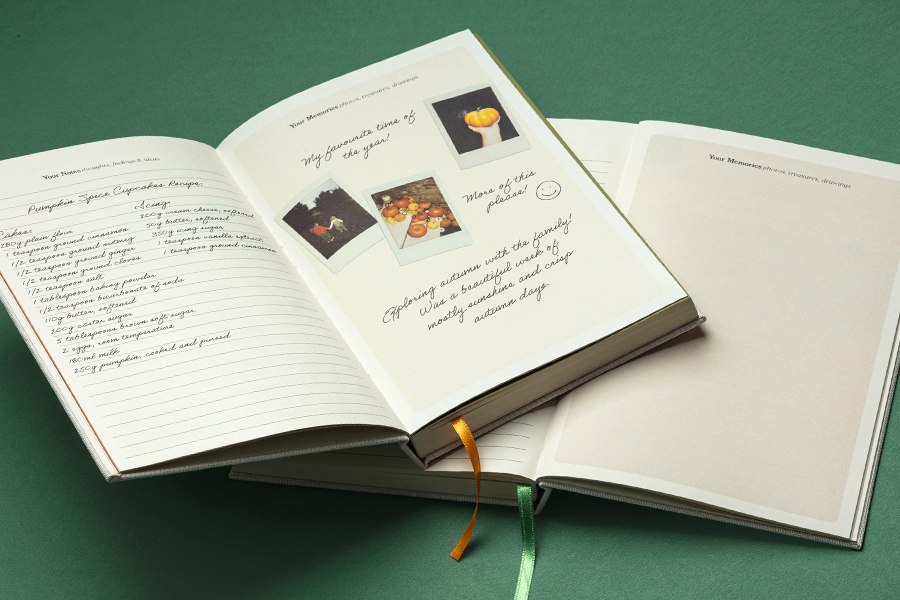 Your Notes thoughts, feelings & ideas
Pumpkin Spice Cupcakes Recipe:
Cakes:
280g plain flour
1 teaspoon ground cinnamon
1/2 teaspoon ground nutmeg
1/2 teaspoon ground ginger
1/2 teaspoon ground cloves
1/2 teaspoon salt
1 tablespoon baking powder
1/2 teaspoon bicarbonate of soda
110g butter, softened
200g caster sugar
5 tablespoons brown soft sugar
2 eggs, room temperature
180ml milk
250g pumpkin, cooked and pureed
Icing:
200g cream cheese, softened
50g butter, softened
350g icing sugar
1 teaspoon vanilla extract
1 teaspoon ground cinnamon
Your Memories photos, treasures, drawings
My favourite time of
the year!
More of this
please!
Exploring autumn with the family!
Was a beautiful week of
mostly sunshine and crisp
autumn days.
Your Memories photos, treasures, drawings